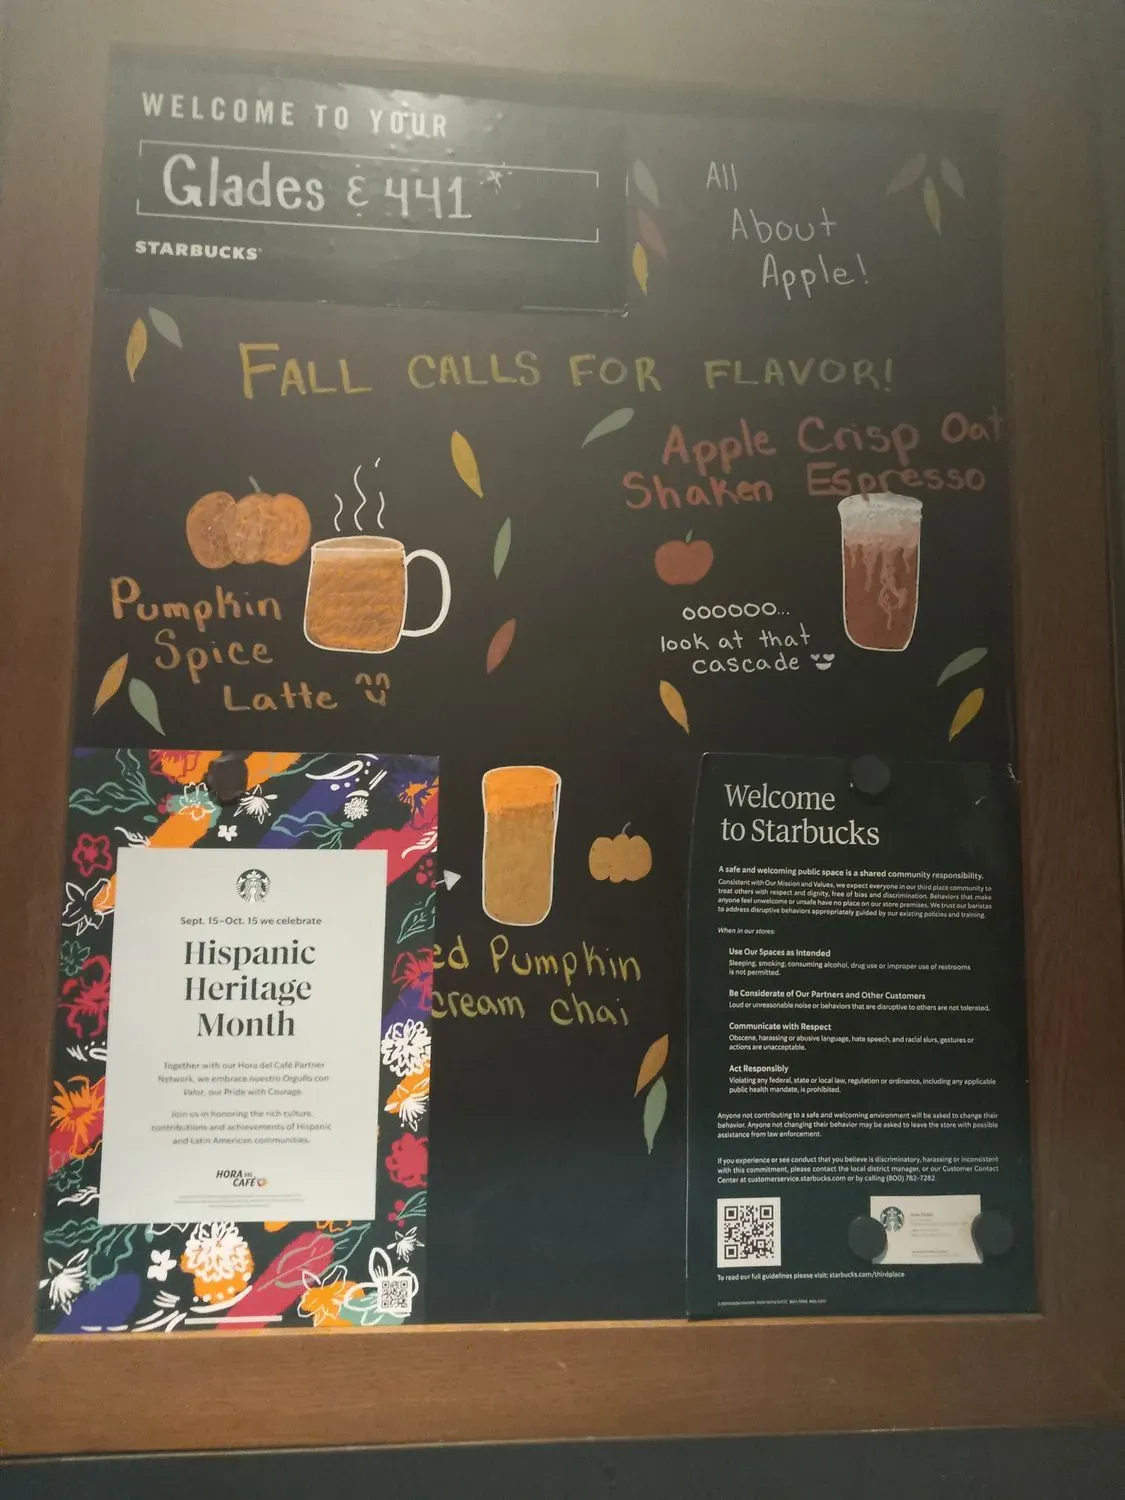 WELCOME TO YOUR
Glades & 441
STARBUCKS
All
About
Apple!
FALL CALLS FOR FLAVOR!
Apple Crisp Oat
Shaken Espresso
oooooo...
look at that
cascade
Pumpkin
Spice
Latte
ed Pumpkin
cream chai
Sept. 15–Oct. 15 we celebrate
Hispanic
Heritage
Month
Together with our Hora del Café Partner
Network, we embrace nuestro Orgullo con
Valor, our Pride with Courage.
Join us in honoring the rich culture,
contributions and achievements of Hispanic
and Latin American communities.
HORA DEL
CAFÉ
Welcome
to Starbucks
A safe and welcoming public space is a shared community responsibility.
Consistent with Our Mission and Values, we expect everyone in our third place community to
treat others with respect and dignity, free of bias and discrimination. Behaviors that make
anyone feel unwelcome or unsafe have no place on our store premises. We trust our baristas
to address disruptive behaviors appropriately guided by our existing policies and training.
When in our stores:
Use Our Spaces as Intended
Sleeping, smoking, consuming alcohol, drug use or improper use of restrooms
is not permitted.
Be Considerate of Our Partners and Other Customers
Loud or unreasonable noise or behaviors that are disruptive to others are not tolerated.
Communicate with Respect
Obscene, harassing or abusive language, hate speech, and racial slurs, gestures or
actions are unacceptable.
Act Responsibly
Violating any federal, state or local law, regulation or ordinance, including any applicable
public health mandate, is prohibited.
Anyone not contributing to a safe and welcoming environment will be asked to change their
behavior. Anyone not changing their behavior may be asked to leave the store with possible
assistance from law enforcement.
If you experience or see conduct that you believe is discriminatory, harassing or inconsistent
with this commitment, please contact the local district manager, or our Customer Contact
Center at customerservice.starbucks.com or by calling (800) 782-7282.
To read our full guidelines please visit: starbucks.com/thirdplace